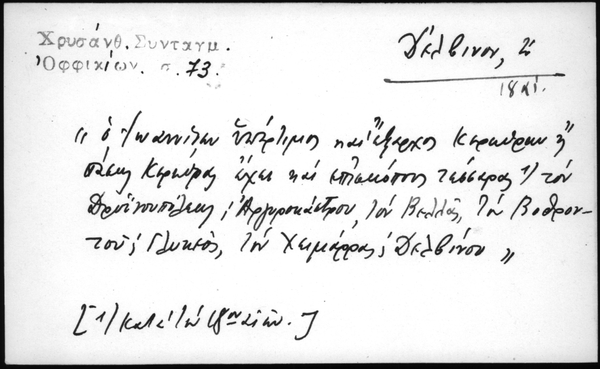 Χρυσάνθ. Συνταγμ.
Ὀφφικίων. σ. 73.
Δέλβινον,
" ὁ Ἰωαννίνων ὑπέρτιμος καὶ ἔξαρχος Κερκύρας
Κερκύρας ἔχει καὶ ἐπισκόπους τέσσαρας 1) τὸν
Δρυϊνουπόλεως ἢ Ἀργυροκάστρου, τὸν Βελλᾶς, τὸν Βοθρον-
τοῦ ἢ Γλυκέος, τὸν Χειμάρρας ἢ Δελβίνου "
[1) κατὰ τὸν 18ον αἰῶν.]